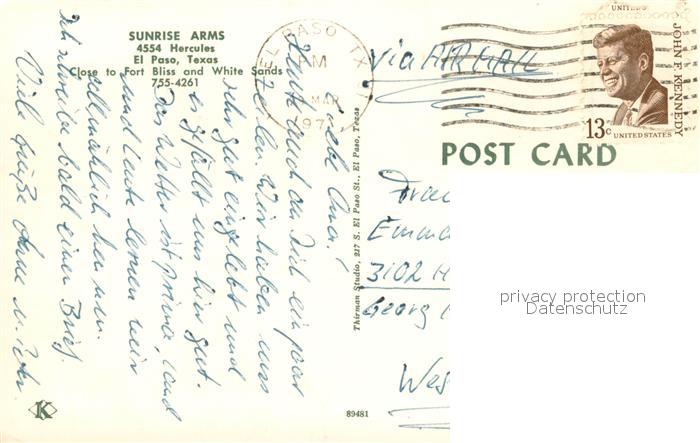 SUNRISE ARMS
4554 Hercules
El Paso, Texas
Close to Fort Bliss and White Sands
755-4261
Liebe Oma!
Heute auch an Dich ein paar
Zeilen. Wir haben uns
sehr gut eingelebt und
es gefällt uns hier gut.
Das Wetter ist prima, Land
und Leute lernen wir
allmählich kennen.
Ich schreibe bald einen Brief.
Viele Grüße Anne u.
Thirman Studio, 217 S. El Paso St., El Paso, Texas
EL PASO TX
PM
MAR
197
via AIR MAIL
UNITED
JOHN F. KENNEDY
13c
UNITED STATES
POST CARD
Frau
Emma
3102 H
Georg
Wes
privacy protection
Datenschutz
K
89481